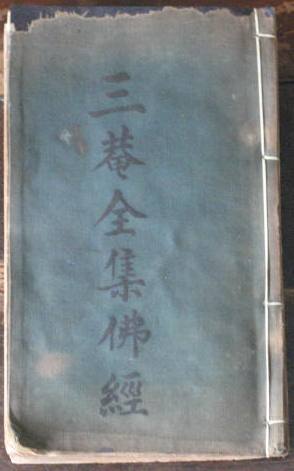 三菴全集佛經